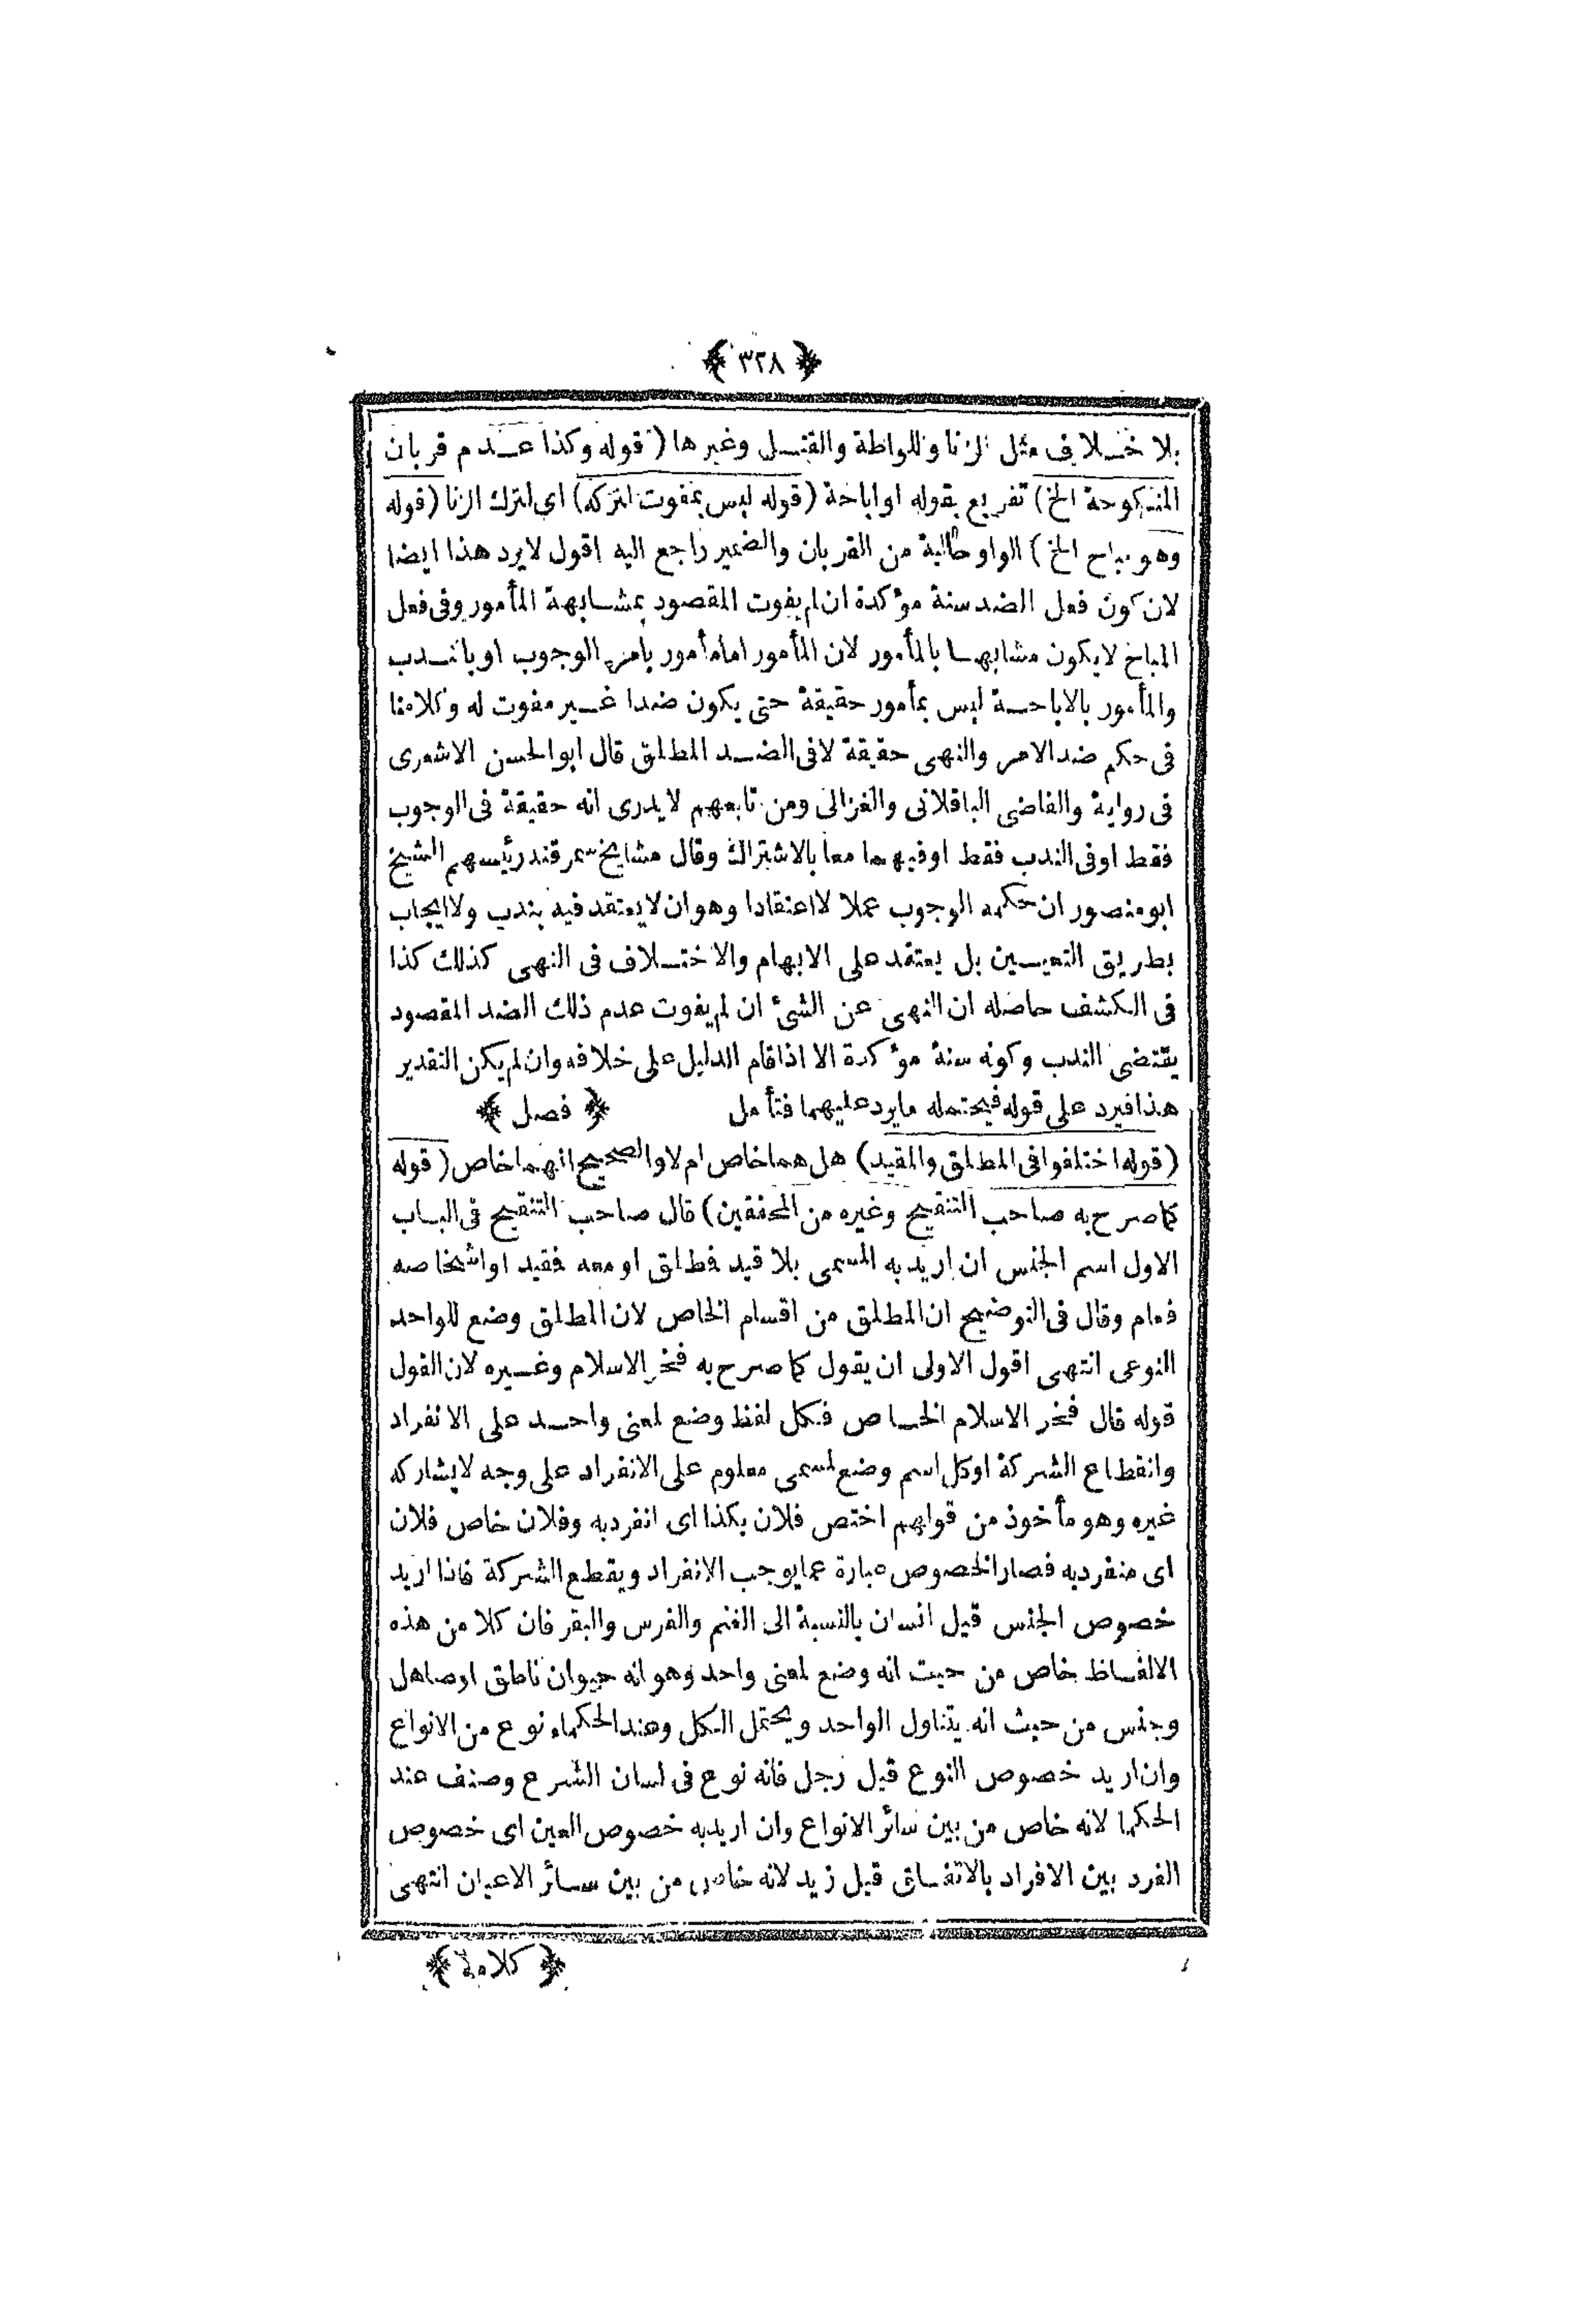 ﴿ ٣٢٨ ﴾
بلا خلاف مثل الزنا واللواطة والقتل وغيرها ( قوله وكذا عدم قربان
المنكوحة الخ ) تفريع بقوله او اباحة ( قوله ليس بمفوت لتركه ) اى لترك الزنا ( قوله
وهو مباح الخ ) الواو حالية من القربان والضمير راجع اليه اقول لا يرد هذا ايضا
لان كون فعل الضد سنة مؤكدة ان لم يفوت المقصود بمشابهة المأمور وفى فعل
المباح لا يكون مشابها بالمأمور لان المأمور اما مأمور بامر الوجوب او بالندب
والمأمور بالاباحة ليس بمأمور حقيقة حتى يكون ضدا غير مفوت له وكلامنا
فى حكم ضد الامر والنهى حقيقة لا فى الضد المطلق قال ابو الحسن الاشعرى
فى رواية والقاضى الباقلانى والغزالى ومن تابعهم لا يدرى انه حقيقة فى الوجوب
فقط او فى الندب فقط او فيهما معا بالاشتراك وقال مشايخ سمرقند رئيسهم الشيخ
ابو منصور ان حكمه الوجوب عملا لا اعتقادا وهو ان لا يعتقد فيه بندب ولا ايجاب
بطريق التعيين بل يعتقد على الابهام والاختلاف فى النهى كذلك كذا
فى الكشف حاصله ان النهى عن الشئ ان لم يفوت عدم ذلك الضد المقصود
يقتضى الندب وكونه سنة مؤكدة الا اذا قام الدليل على خلافه وان لم يكن التقدير
هذا فيرد على قوله فيحتمله ما يرد عليهما فتأمل ﴿ فصل ﴾
( قوله اختلفوا فى المطلق والمقيد ) هل هما خاص ام لا والصحيح انهما خاص ( قوله
كما صرح به صاحب التنقيح وغيره من المحققين ) قال صاحب التنقيح فى الباب
الاول اسم الجنس ان اريد به المسمى بلا قيد فمطلق او معه فمقيد او اشخاصه
فعام وقال فى التوضيح ان المطلق من اقسام الخاص لان المطلق وضع للواحد
النوعى انتهى اقول الاولى ان يقول كما صرح به فخر الاسلام وغيره لان القول
قوله قال فخر الاسلام الخاص فكل لفظ وضع لمعنى واحد على الانفراد
وانقطاع الشركة او كل اسم وضع لمسمى معلوم على الانفراد على وجه لا يشاركه
غيره وهو مأخوذ من قولهم اختص فلان بكذا اى انفرد به وفلان خاص فلان
اى منفرد به فصار الخصوص عبارة عما يوجب الانفراد ويقطع الشركة فاذا اريد
خصوص الجنس قيل انسان بالنسبة الى الغنم والفرس والبقر فان كلا من هذه
الالفاظ خاص من حيث انه وضع لمعنى واحد وهو انه حيوان ناطق او صاهل
وجنس من حيث انه يتناول الواحد ويحتمل الكل وعند الحكماء نوع من الانواع
وان اريد خصوص النوع قيل رجل فانه نوع فى لسان الشرع وصنف عند
الحكما لانه خاص من بين سائر الانواع وان اريد به خصوص العين اى خصوص
الفرد بين الافراد بالاتفاق قيل زيد لانه خاص من بين سائر الاعيان انتهى
﴿ كلامه ﴾